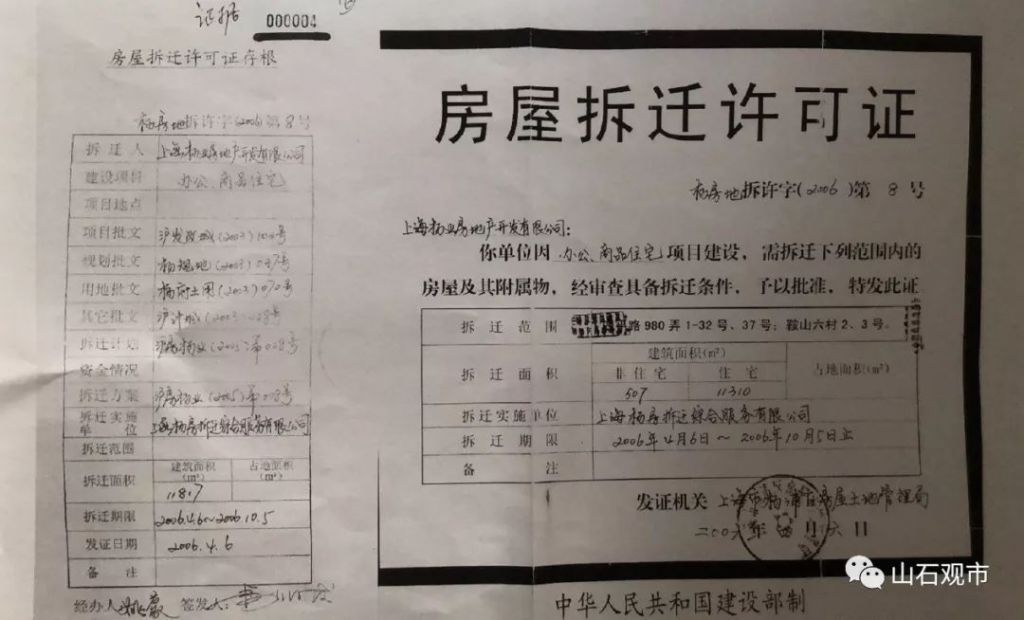 证据
000004
房屋拆迁许可证存根
杨房地拆许字(2006)第8号
拆迁人 上海杨业房地产开发有限公司
建设项目 办公、商品住宅
项目地点
项目批文
规划批文 杨规地(2003)037号
用地批文 杨府土用(2003)070号
其它批文
拆迁计划
资金情况
拆迁方案
拆迁实施单位 上海杨房拆迁综合服务有限公司
拆迁范围
拆迁面积 建筑面积(m²) 占地面积(m²)
11817
拆迁期限 2006.4.6~2006.10.5
发证日期 2006.4.6
备注
经办人 签发人:
房屋拆迁许可证
杨房地拆许字(2006)第 8 号
上海杨业房地产开发有限公司:
你单位因 办公、商品住宅 项目建设,需拆迁下列范围内的
房屋及其附属物,经审查具备拆迁条件,予以批准,特发此证
拆迁范围 路980弄1-32号、37号;鞍山六村2、3号。
拆迁面积 建筑面积(m²) 占地面积(m²)
非住宅 住宅
507 11310
拆迁实施单位 上海杨房拆迁综合服务有限公司
拆迁期限 2006年4月6日~2006年10月5日止
备注
发证机关 上海市杨浦区房屋土地管理局
二00六年四月六日
中华人民共和国建设部制
山石观市